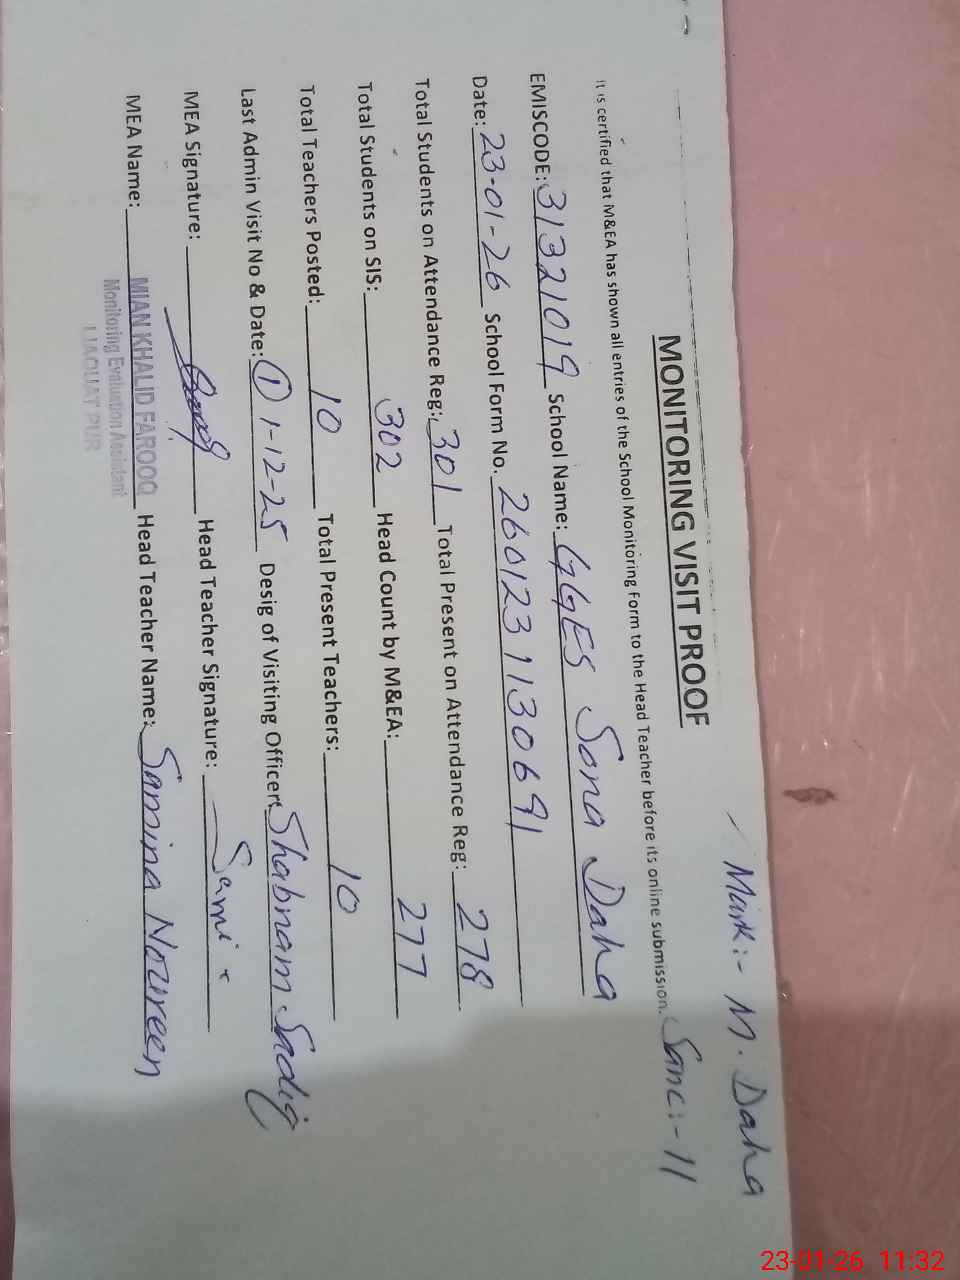 Mark:- M. Daha
MONITORING VISIT PROOF
Sanc:- 11
It is certified that M&EA has shown all entries of the School Monitoring Form to the Head Teacher before its online submission.
EMISCODE: 31321019 School Name: GGES Sona Daha
Date: 23-01-26 School Form No. 2601231130691
Total Students on Attendance Reg: 301 Total Present on Attendance Reg: 278
Total Students on SIS: 302 Head Count by M&EA: 277
Total Teachers Posted: 10 Total Present Teachers: 10
Last Admin Visit No & Date: ① 1-12-25 Desig of Visiting Officer: Shabnam Sadiq
MEA Signature: Head Teacher Signature: Sami
MEA Name: MIAN KHALID FAROOQ Head Teacher Name: Samina Noureen
Monitoring Evaluation Assistant
LIAQUAT PUR
23-01-26 11:32